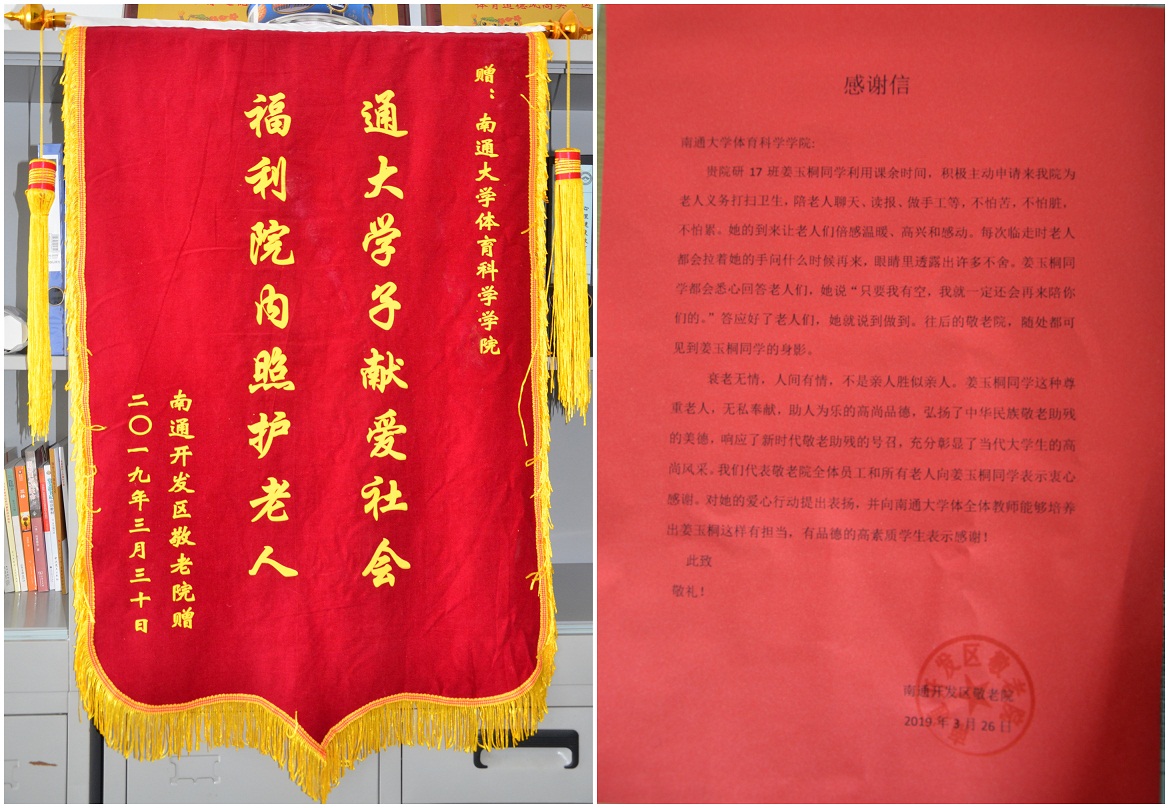 赠：南通大学体育科学学院
通大学子献爱社会
福利院内照护老人
南通开发区敬老院赠
二〇一九年三月三十日
感谢信
南通大学体育科学学院:
贵院研 17 班姜玉桐同学利用课余时间，积极主动申请来我院为
老人义务打扫卫生，陪老人聊天、读报、做手工等，不怕苦，不怕脏，
不怕累。她的到来让老人们倍感温暖、高兴和感动。每次临走时老人
都会拉着她的手问什么时候再来，眼睛里透露出许多不舍。姜玉桐同
学都会悉心回答老人们，她说“只要我有空，我就一定还会再来陪你
们的。”答应好了老人们，她就说到做到。往后的敬老院，随处都可
见到姜玉桐同学的身影。
衰老无情，人间有情，不是亲人胜似亲人。姜玉桐同学这种尊
重老人，无私奉献，助人为乐的高尚品德，弘扬了中华民族敬老助残
的美德，响应了新时代敬老助残的号召，充分彰显了当代大学生的高
尚风采。我们代表敬老院全体员工和所有老人向姜玉桐同学表示衷心
感谢。对她的爱心行动提出表扬，并向南通大学体全体教师能够培养
出姜玉桐这样有担当，有品德的高素质学生表示感谢！
此致
敬礼！
南通开发区敬老院
2019 年 3 月 26 日